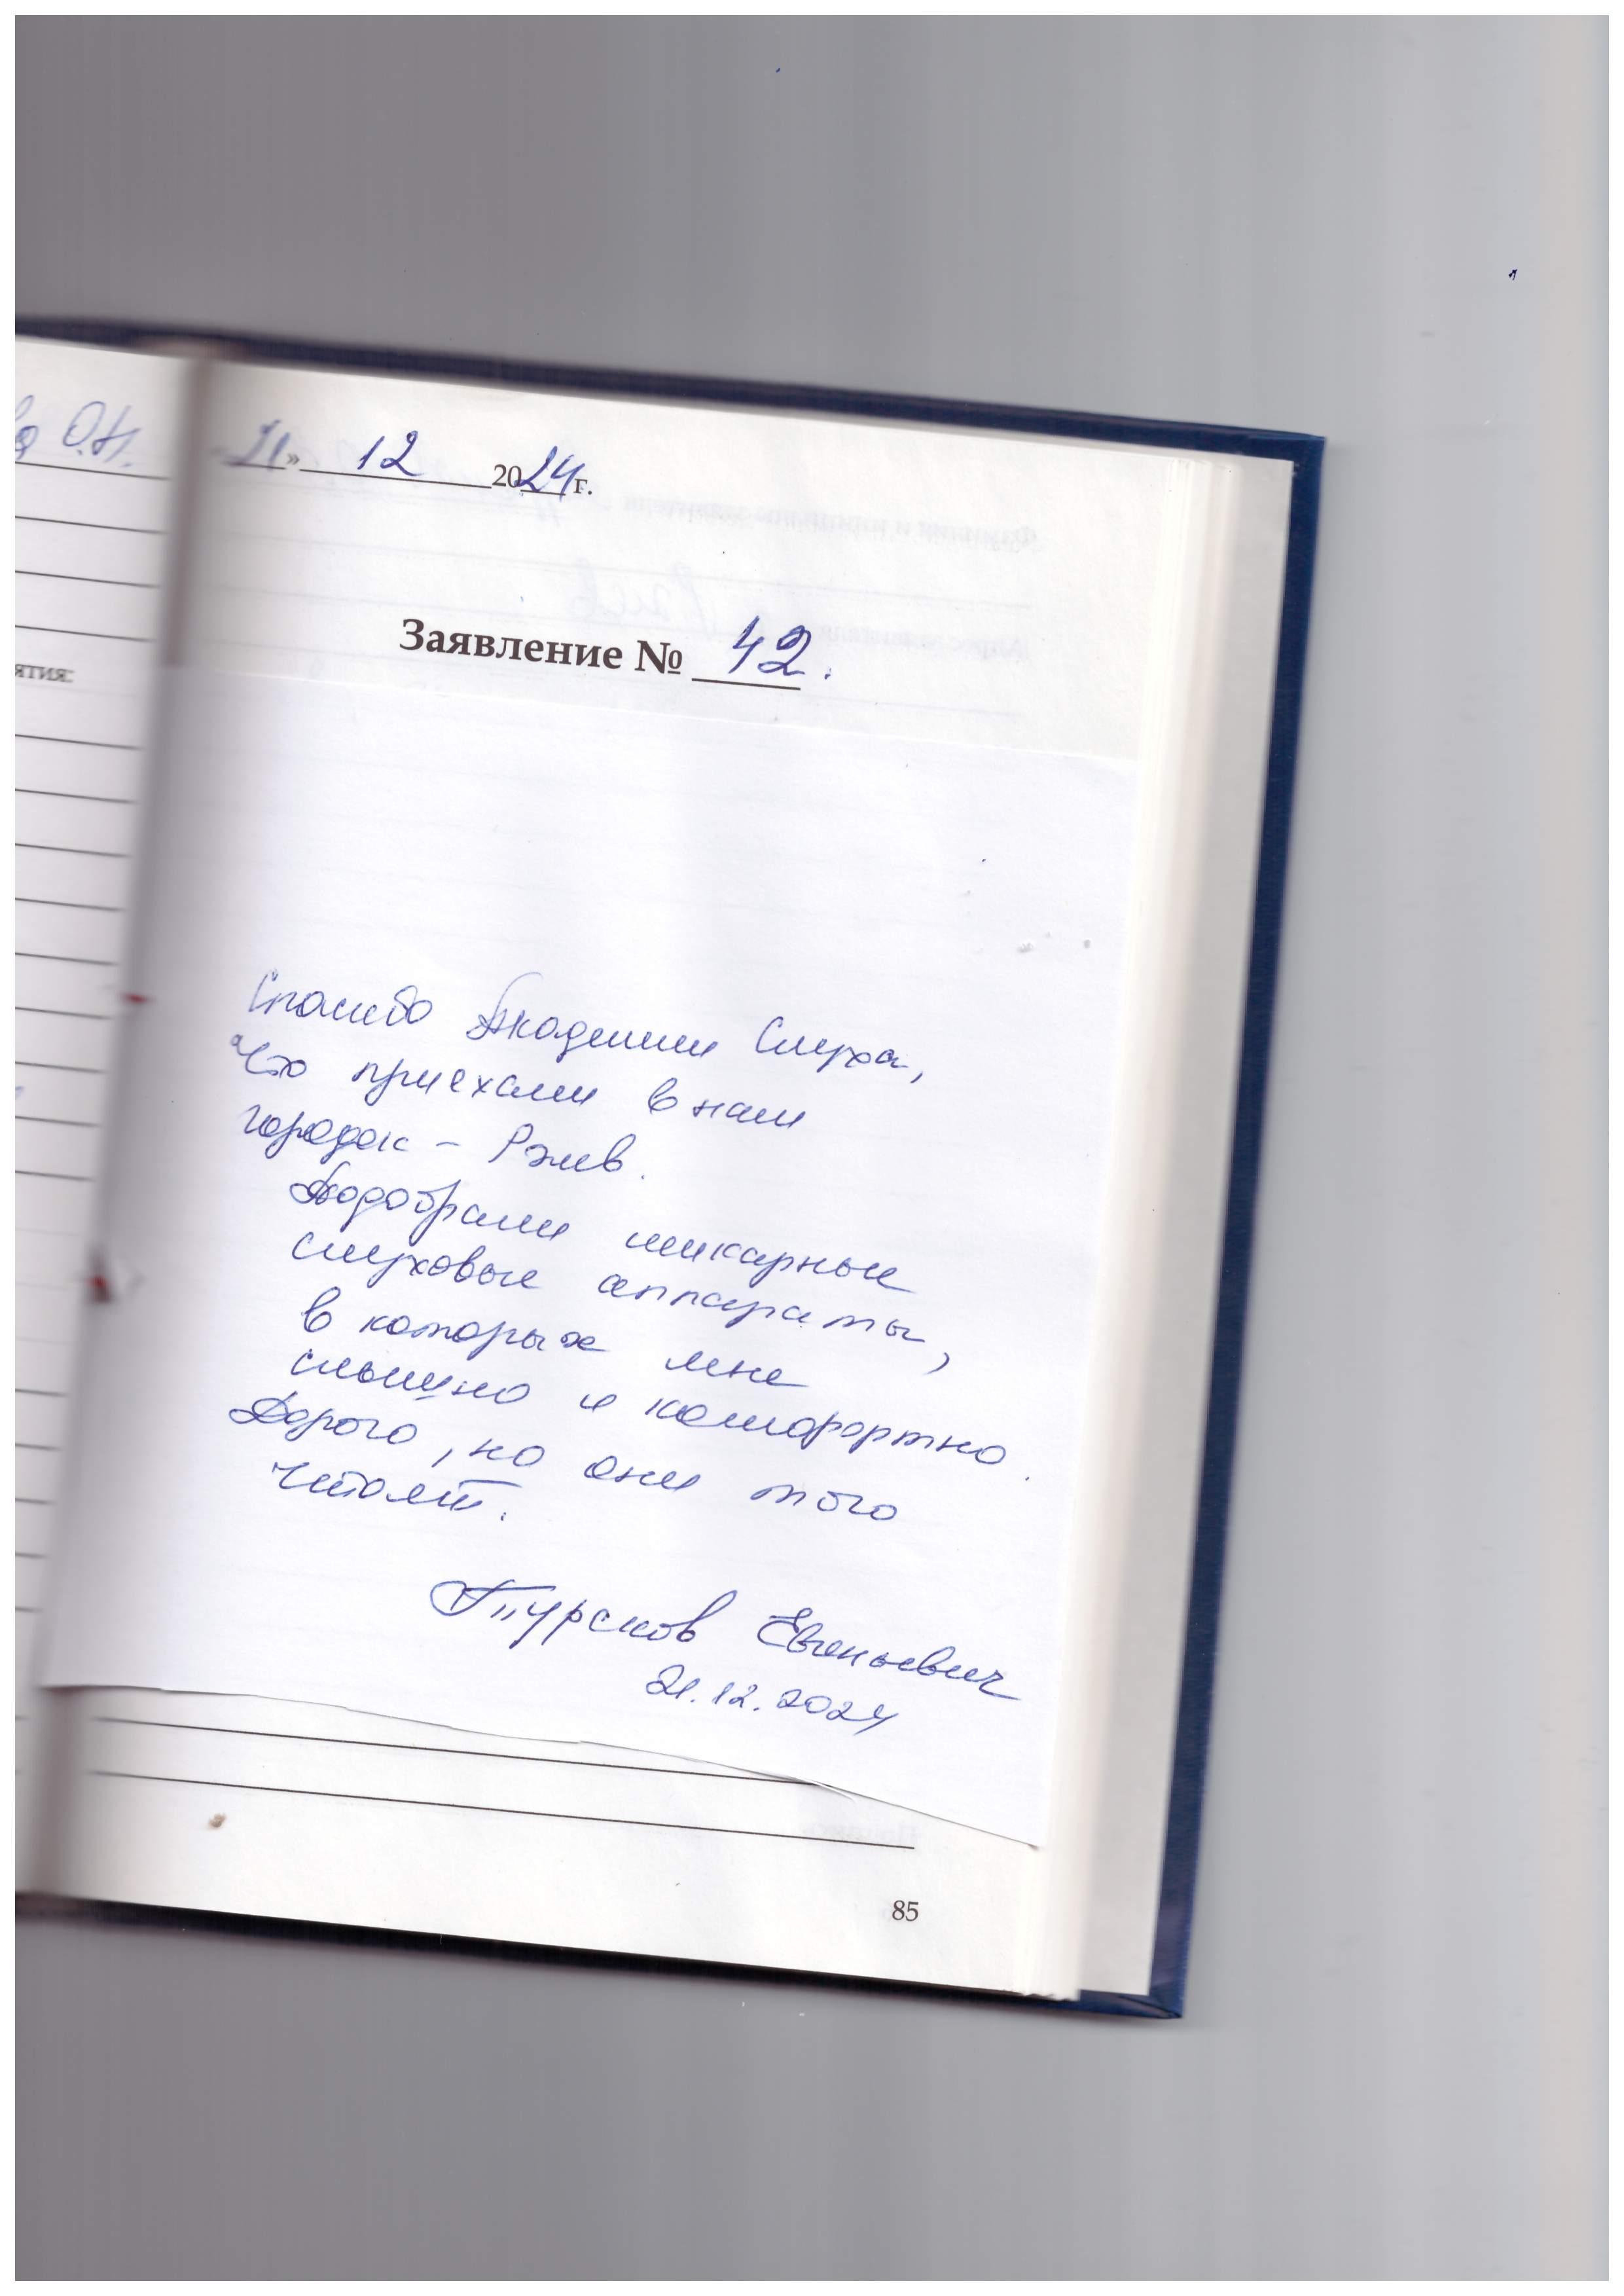 О.Н.
ятия:
«21» 12 2024 г.
Заявление № 42.
Спасибо Академии Слуха,
что приехали в наш
городок - Ржев.
Подобрали шикарные
слуховые аппараты,
в которых мне
слышно и комфортно.
Дорого, но они того
Евгеньевич
21.12.2024
85